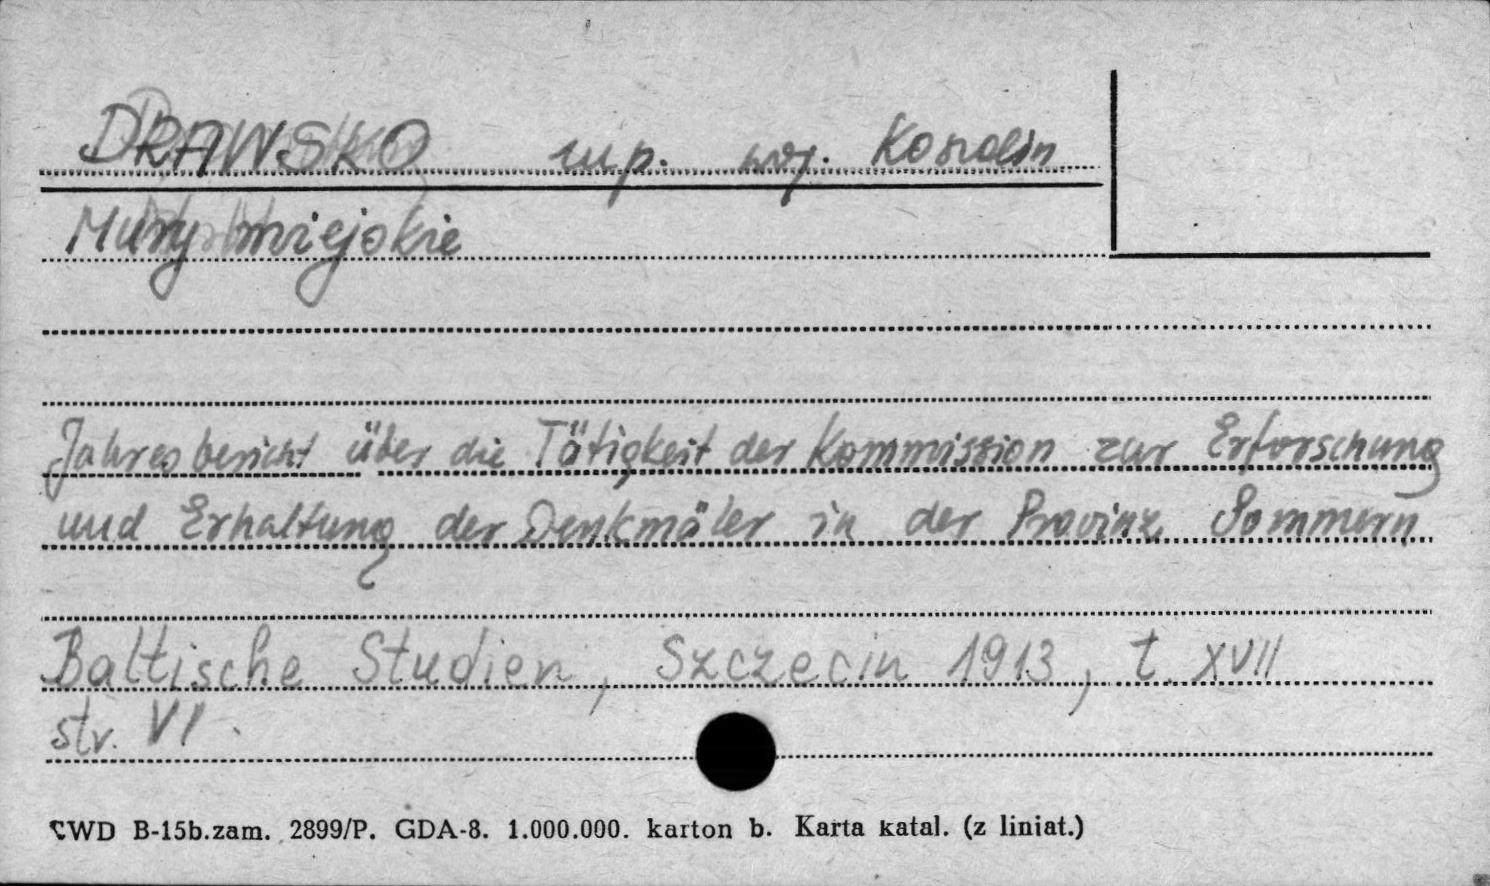 DRAWSKO m.p. woj. Koszalin
Mury miejskie
Jahresbericht über die Tätigkeit der Kommission zur Erforschung
und Erhaltung der Denkmäler in der Provinz Pommern
Baltische Studien, Szczecin 1913, t. XVII
str. VI.
CWD B-15b.zam. 2899/P. GDA-8. 1.000.000. karton b. Karta katal. (z liniat.)